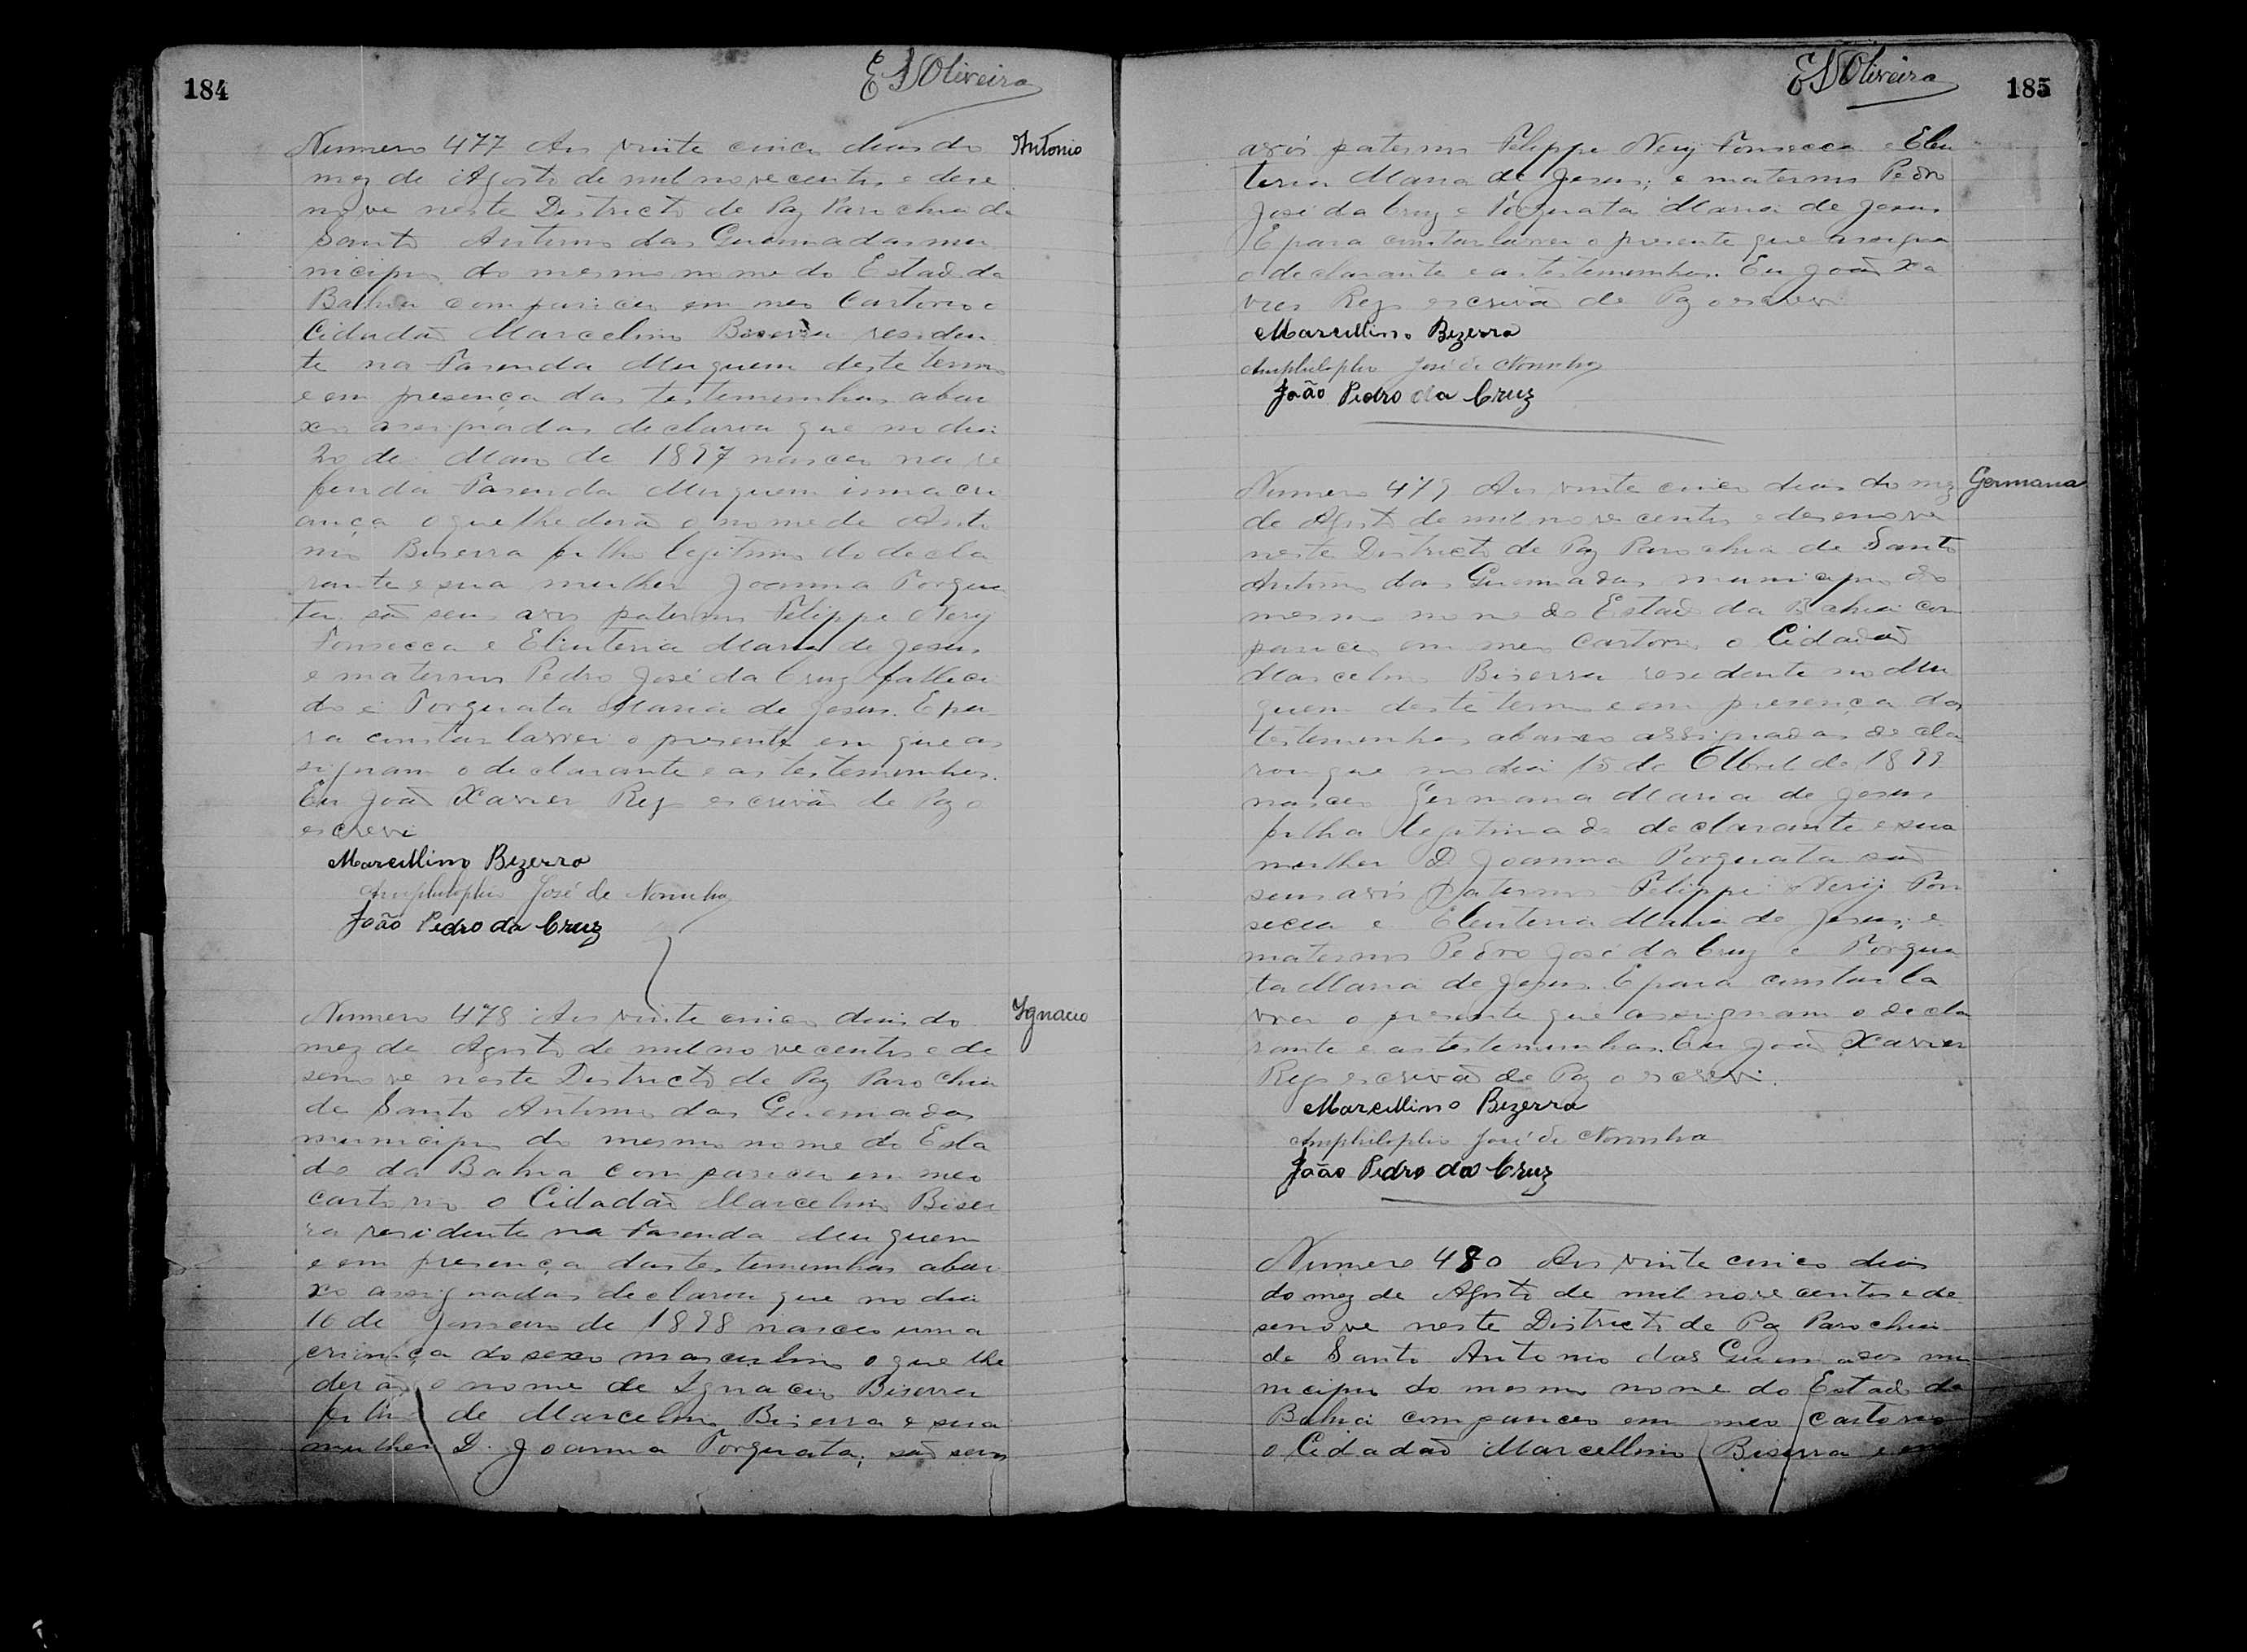 184
E S Oliveira
Numero 477 Aos vinte cinco dias do
Antonio
mez de Agosto de mil nove centos e dese
nove neste Districto de Paz Parochia de
Santo Antonio das Queimadas mu
nicipio do mesmo nome do Estado da
Bahia compareceu em meo Cartorio o
Cidadaõ Marcelino Biserra residen
te na Fasenda Muquem deste termo
e em presença das testemunhas abai
xo assignadas declarou que no dia
20 de Maio de 1897 nasceu na re
ferida Fasenda Muquem uma cri
ança o que lhe deraõ o nome de Anto
nio Biserra filho legitimo do decla
rante e sua mulher Joanna Torqua
ta saõ seus avos paternos Felippe Nery
Fonsecca e Eleuteria Maria de Jesus
e maternos Pedro José da Cruz falleci
do e Torquata Maria de Jesus. E pa
ra constar lavrei o presente em que as
signam o declarante e as testemunhas.
Eu Joaõ Xavier Rego escrivaõ de Paz o
escrevi
Marcellino Bizerra
Amphilophio José de Noronha
João Pedro da Cruz
Numero 478 Aos vinte cinco dias do
Ignacio
mez de Agosto de mil nove centos e de
senove neste Districto de Paz Parochia
de Santo Antonio das Queimadas
municipio do mesmo nome do Esta
do da Bahia compareceu em meo
cartorio o Cidadaõ Marcelino Biser
ra residente na Fasenda Muquem
e em presença das testemunhas abai
xo assignadas declarou que no dia
16 de Janeiro de 1898 nasceo uma
criança do sexo masculino o que lhe
deraõ o nome de Ignacio Biserra
filho de Marcelino Biserra e sua
mulher D. Joanna Torquata; saõ seus
E S Oliveira
185
avós paternos Felippe Nery Fonsecca e Eleu
teria Maria de Jesus; e maternos Pedro
José da Cruz e Torquata Maria de Jesus
E para constar lavrei o presente que assigna
o declarante e as testemunhas. Eu Joaõ Xa
vier Rego escrivaõ de Paz o escrevi
Marcellino Bizerra
Amphilophio José de Noronha
João Pedro da Cruz
Numero 479 Aos vinte cinco dias do mez
Germana
de Agosto de mil nove centos e desenove
neste Districto de Paz Parochia de Santo
Antonio das Queimadas municipio do
mesmo nome do Estado da Bahia com
pareceu em meo Cartorio o Cidadaõ
Marcelino Biserra residente no Mu
quem deste termo e em presença das
testemunhas abaixo assignadas decla
rou que no dia 15 de Abril de 1899
nasceo Germana Maria de Jesus
filha legitima do declarante e sua
mulher D. Joanna Torquata saõ
seus avós paternos Felippe Nery Fon
secca e Eleuteria Maria de Jesus; e
maternos Pedro José da Cruz e Torqua
ta Maria de Jesus. E para constar la
vrei o presente que assignam o decla
rante e as testemunhas. Eu Joaõ Xavier
Rego escrivaõ de Paz o escrevi.
Marcellino Bizerra
Amphilophio José de Noronha
João Pedro da Cruz
Numero 480 Aos vinte cinco dias
do mez de Agosto de mil nove centos e de
senove neste Districto de Paz Parochia
de Santo Antonio das Queimadas mu
nicipio do mesmo nome do Estado da
Bahia compareceo em meo cartorio
o Cidadaõ Marcellino Biserra e em